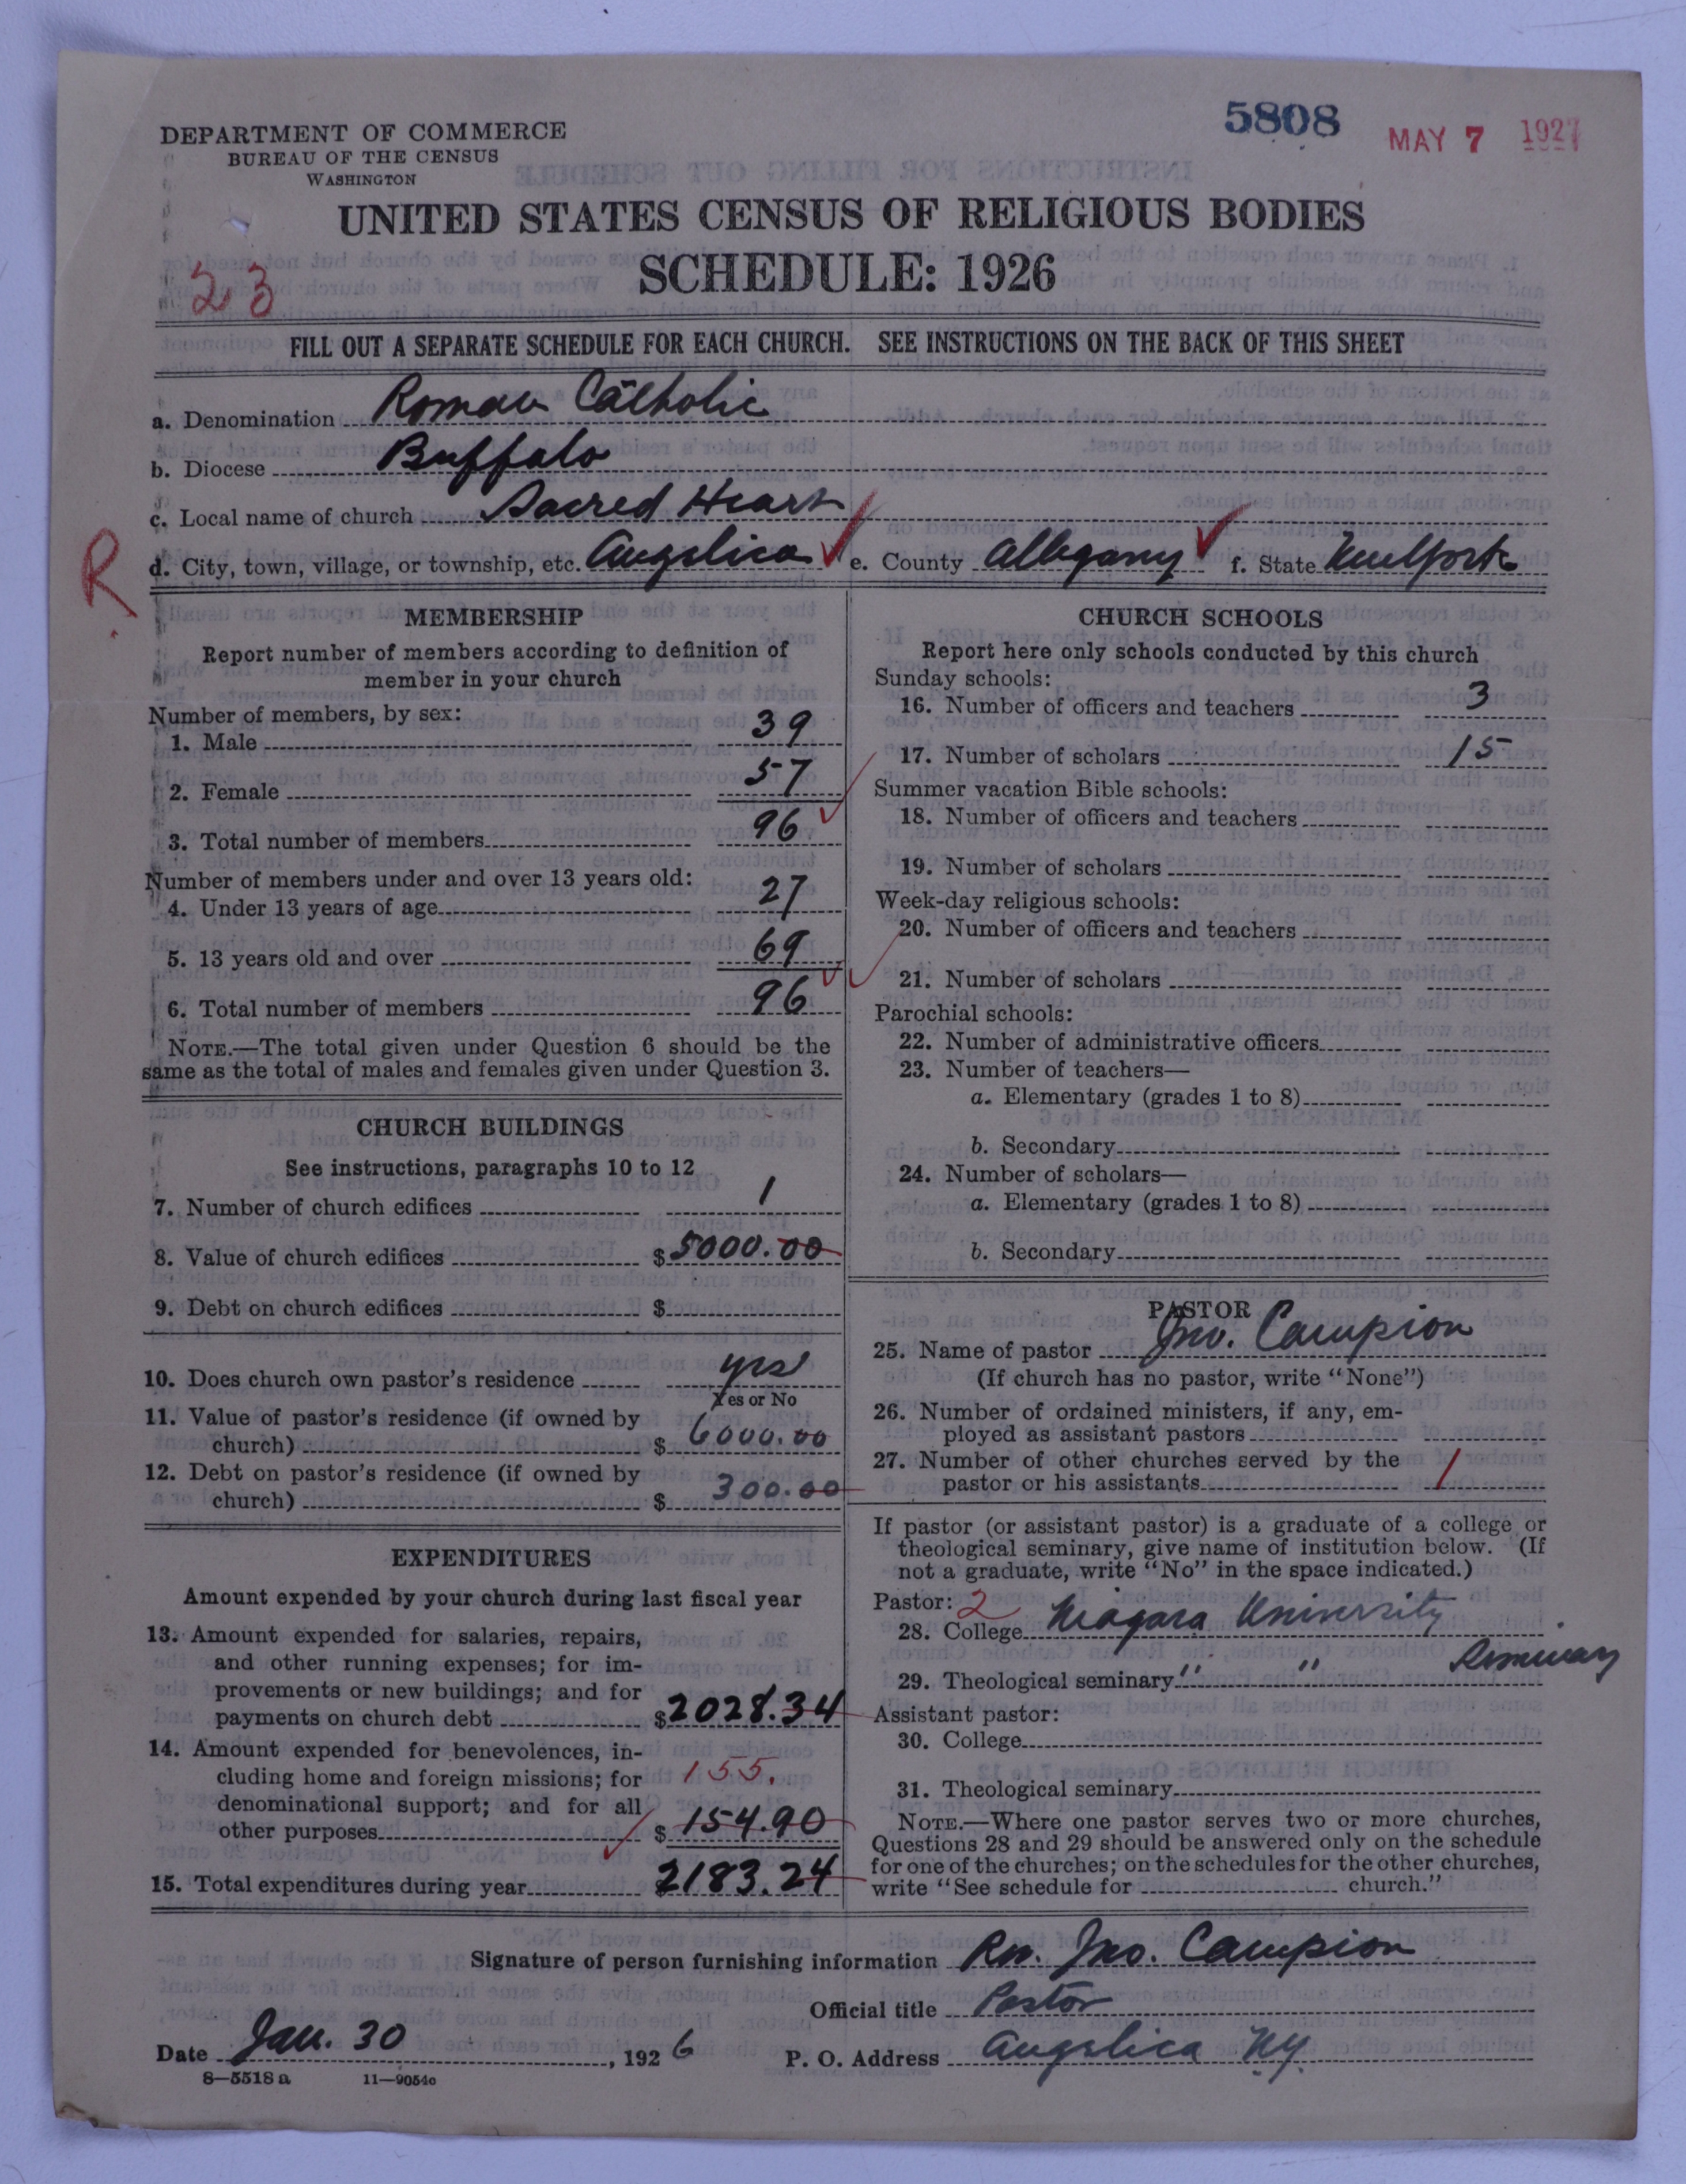 5808
MAY 7 1927
DEPARTMENT OF COMMERCE
BUREAU OF THE CENSUS
WASHINGTON
UNITED STATES CENSUS OF RELIGIOUS BODIES
SCHEDULE: 1926
23
FILL OUT A SEPARATE SCHEDULE FOR EACH CHURCH. SEE INSTRUCTIONS ON THE BACK OF THIS SHEET
a. Denomination Roman Catholic
b. Diocese Buffalo
c. Local name of church Sacred Heart
R
d. City, town, village, or township, etc. Angelica e. County Allegany f. State New York
MEMBERSHIP
Report number of members according to definition of
member in your church
Number of members, by sex:
1. Male 39
2. Female 57
3. Total number of members 96
Number of members under and over 13 years old:
4. Under 13 years of age 27
5. 13 years old and over 69
6. Total number of members 96
NOTE.—The total given under Question 6 should be the
same as the total of males and females given under Question 3.
CHURCH BUILDINGS
See instructions, paragraphs 10 to 12
7. Number of church edifices 1
8. Value of church edifices $5000.00
9. Debt on church edifices $
10. Does church own pastor's residence yes
Yes or No
11. Value of pastor's residence (if owned by
church) $ 6000.00
12. Debt on pastor's residence (if owned by
church) $ 300.00
EXPENDITURES
Amount expended by your church during last fiscal year
13. Amount expended for salaries, repairs,
and other running expenses; for im-
provements or new buildings; and for
payments on church debt $2028.34
14. Amount expended for benevolences, in-
cluding home and foreign missions; for 155.
denominational support; and for all
other purposes $ 154.90
15. Total expenditures during year 2183.24
CHURCH SCHOOLS
Report here only schools conducted by this church
Sunday schools:
16. Number of officers and teachers 3
17. Number of scholars 15
Summer vacation Bible schools:
18. Number of officers and teachers
19. Number of scholars
Week-day religious schools:
20. Number of officers and teachers
21. Number of scholars
Parochial schools:
22. Number of administrative officers
23. Number of teachers—
a. Elementary (grades 1 to 8)
b. Secondary
24. Number of scholars—
a. Elementary (grades 1 to 8)
b. Secondary
PASTOR
25. Name of pastor Jno. Campion
(If church has no pastor, write "None")
26. Number of ordained ministers, if any, em-
ployed as assistant pastors
27. Number of other churches served by the
pastor or his assistants 1
If pastor (or assistant pastor) is a graduate of a college or
theological seminary, give name of institution below. (If
not a graduate, write "No" in the space indicated.)
Pastor: 2
28. College Niagara University
29. Theological seminary " " Seminary
Assistant pastor:
30. College
31. Theological seminary
NOTE.—Where one pastor serves two or more churches,
Questions 28 and 29 should be answered only on the schedule
for one of the churches; on the schedules for the other churches,
write "See schedule for church."
Signature of person furnishing information Rev. Jno. Campion
Official title Pastor
Date Jan. 30, 1926 P. O. Address Angelica N.Y.
8—5518 a 11—9054c